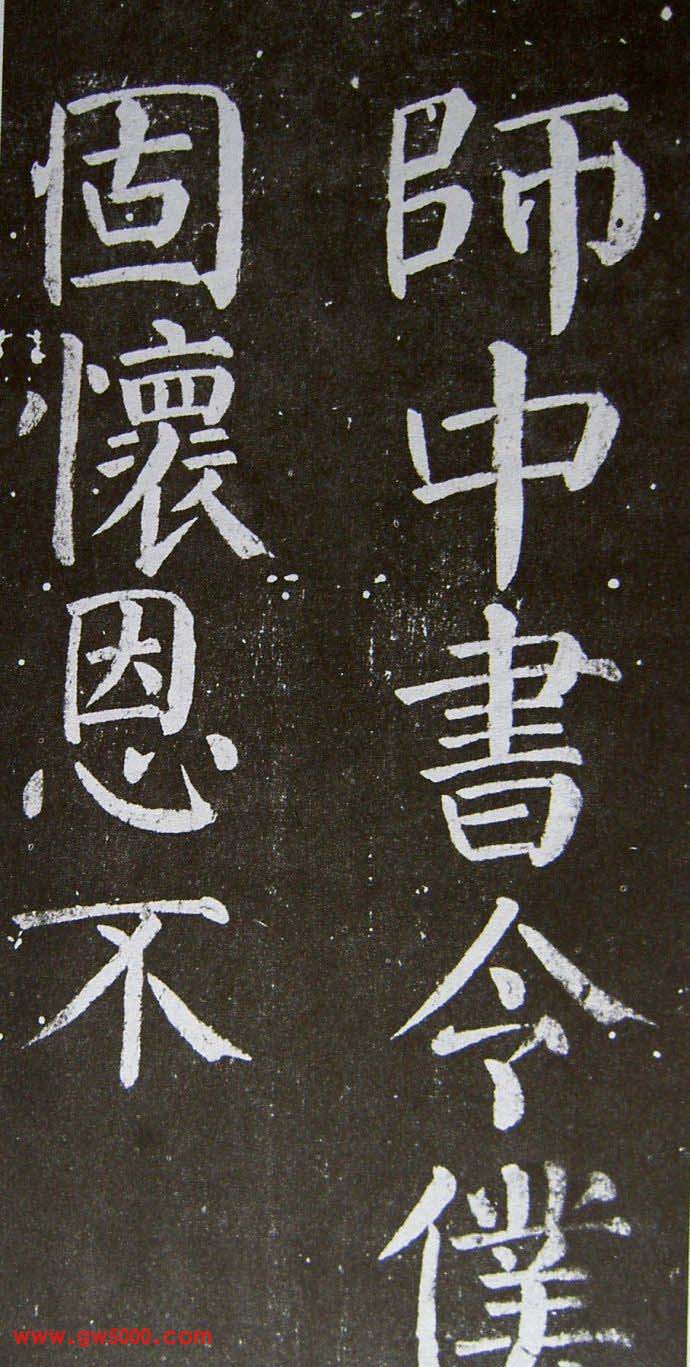 師中書令僕
固懷恩不
www.gw5000.com